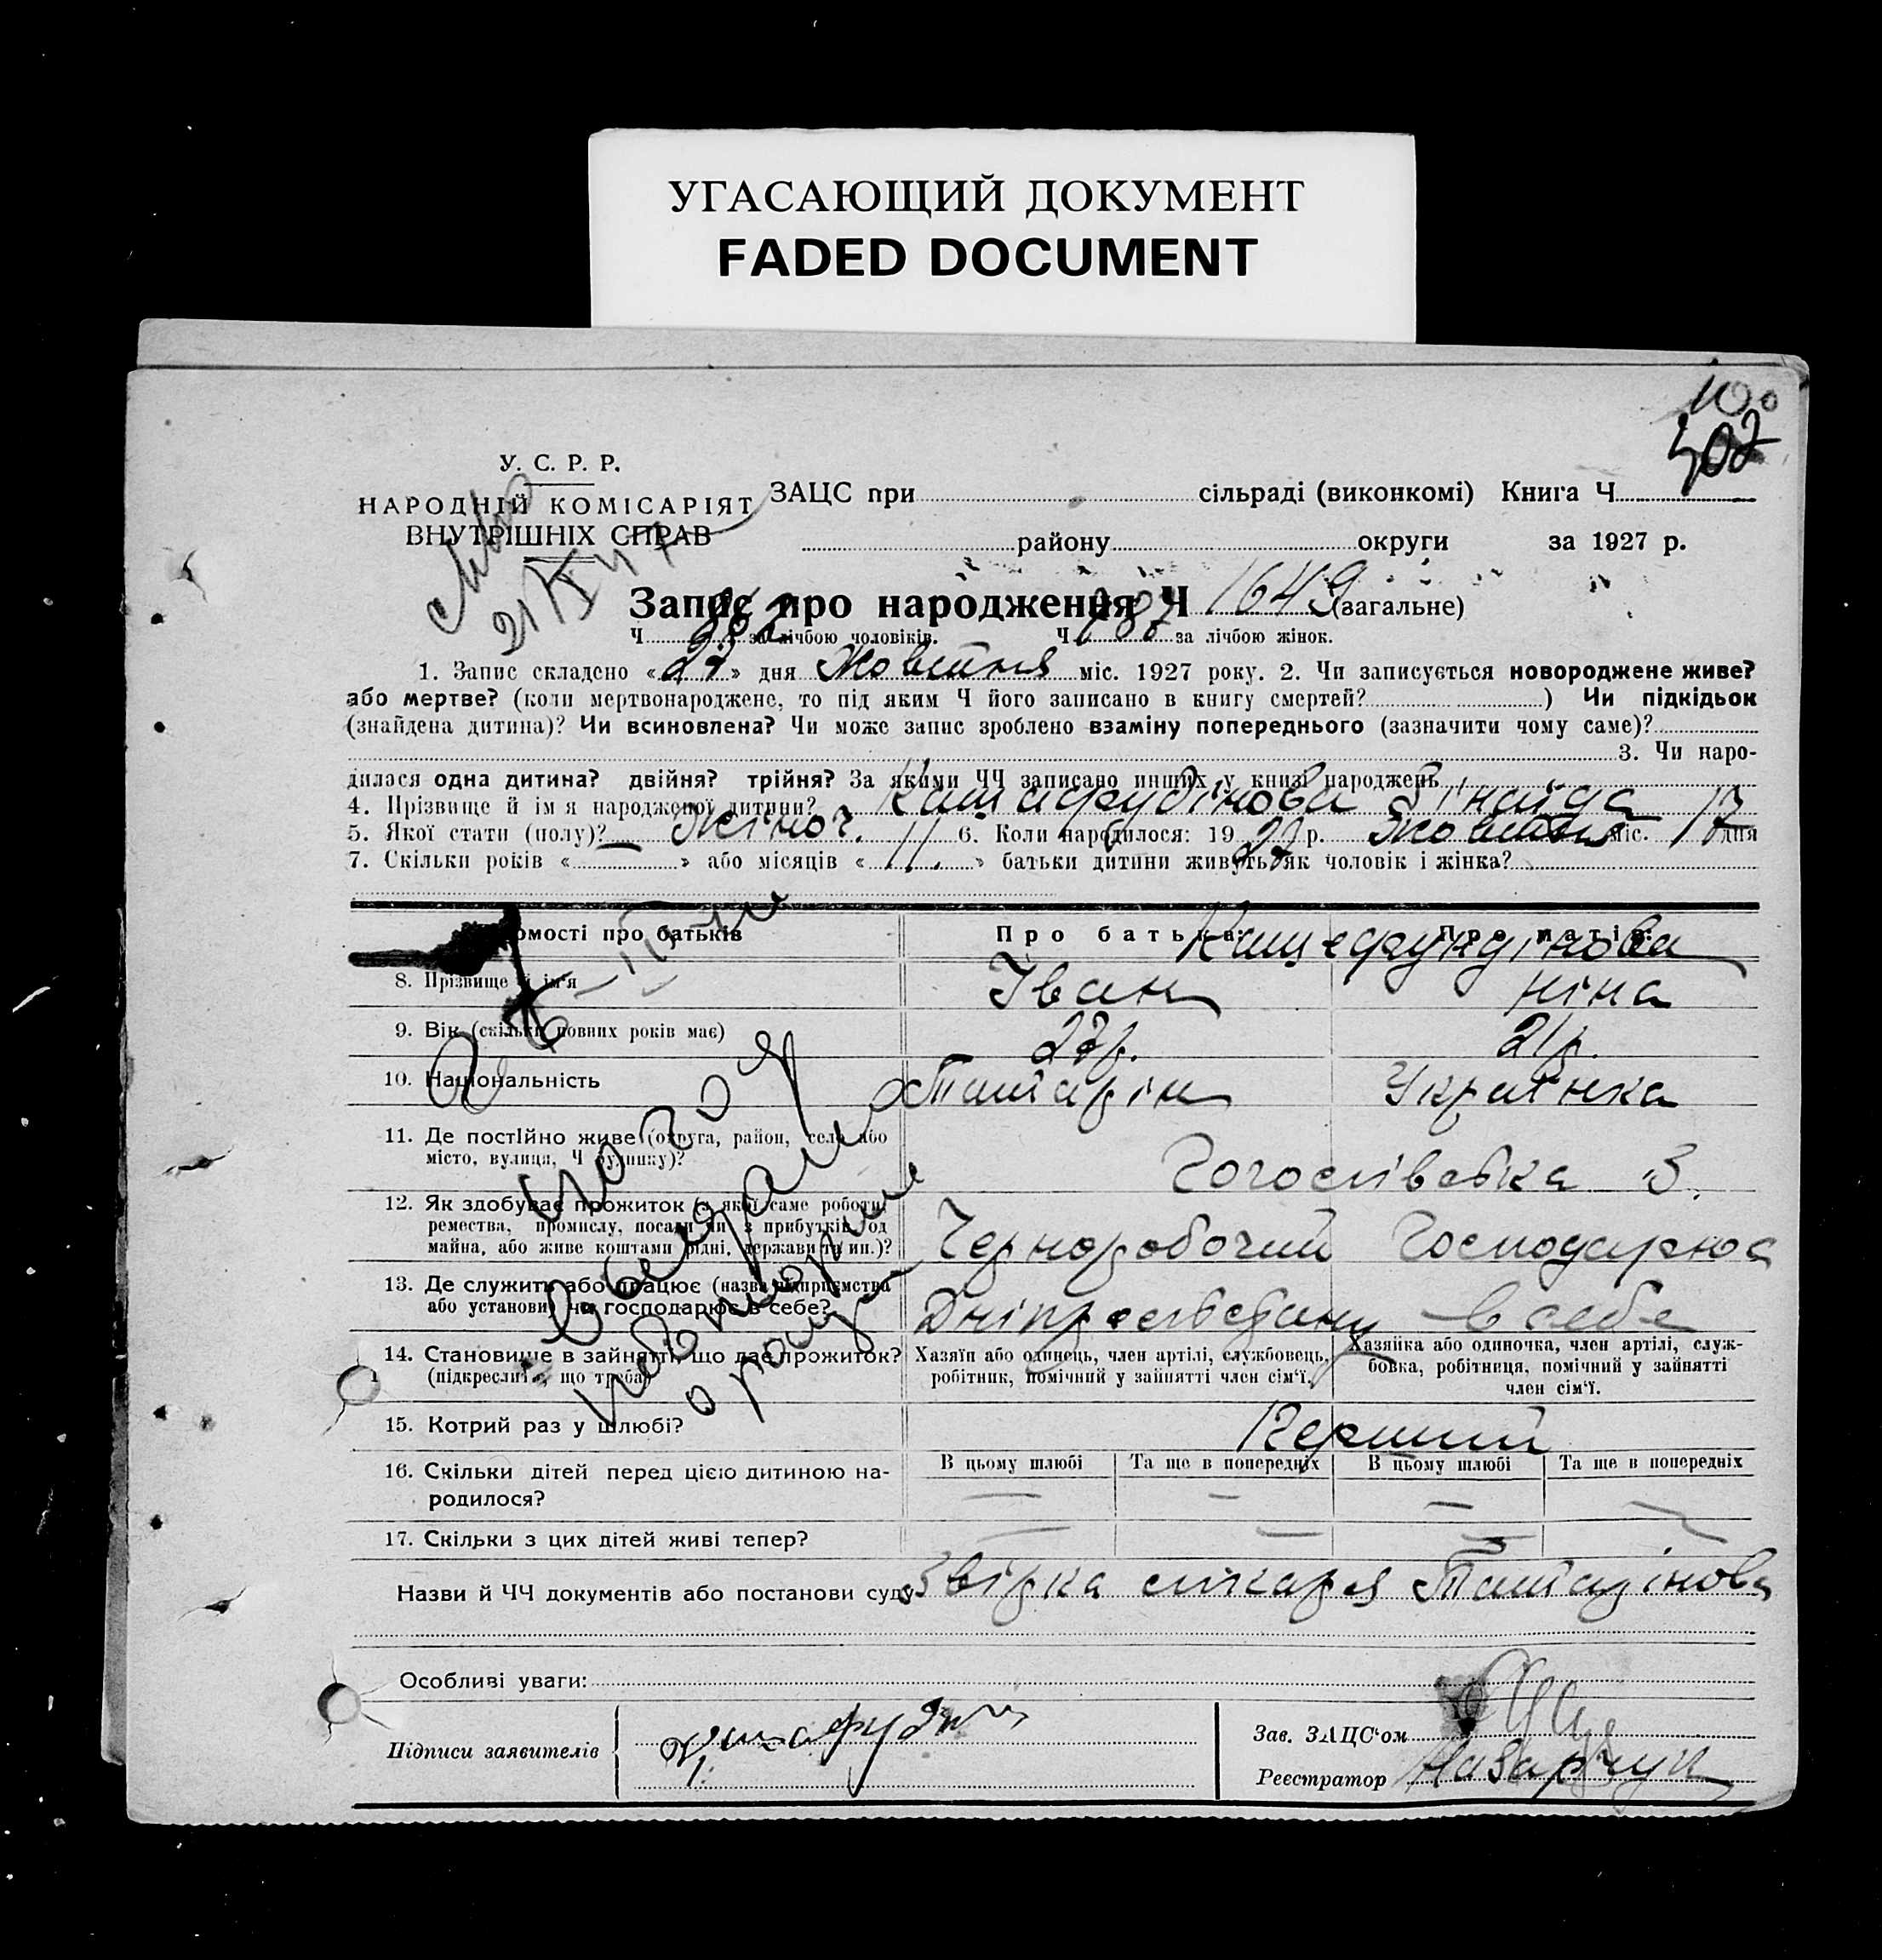 УГАСАЮЩИЙ ДОКУМЕНТ
FADED DOCUMENT
100
У. С. Р. Р.
НАРОДНІЙ КОМІСАРІЯТ
ВНУТРІШНІХ СПРАВ
ЗАЦС при сільраді (виконкомі) Книга Ч
району округи за 1927 р.
Запис про народження Ч 1649 (загальне)
Ч 862 за лічбою чоловіків. Ч 787 за лічбою жінок.
1. Запис складено « 27 » дня Жовтня міс. 1927 року. 2. Чи записується новороджене живе?
або мертве? (коли мертвонароджене, то під яким Ч його записано в книгу смертей? ) Чи підкідьок
(знайдена дитина)? Чи всиновлена? Чи може запис зроблено взаміну попереднього (зазначити чому саме)?
3. Чи наро-
дилася одна дитина? двійня? трійня? За якими ЧЧ записано инших у книзі народжень
4. Прізвище й ім'я народженої дитини? Кашафудінова Зінаїда
5. Якої стати (полу)? Жіноч. 6. Коли народилося: 1927 р. Жовтня міс. 17 дня
7. Скільки років « — » або місяців « 11 » батьки дитини живуть як чоловік і жінка?
Відомості про батьків
Про батька: Про матір:
8. Прізвище й ім'я Іван Ніна
9. Вік (скільки повних років має) 27р. 21р.
10. Національність Татарін Українка
11. Де постійно живе (округа, район, село або
місто, вулиця, Ч будинку)?
3.
12. Як здобуває прожиток (з якої саме роботи,
ремества, промислу, посади чи з прибутків од
майна, або живе коштами рідні, держави та ин.)?
Чернробочий Господарює
13. Де служить або працює (назва підприємства
або установи) чи господарює в себе?
в себе
14. Становище в занятті, що дає прожиток?
(підкреслить, що треба)
Хазяїн або одинець, член артілі, службовець,
робітник, помічний у занятті член сім'ї.
Хазяйка або одиночка, член артілі, служ-
бовка, робітниця, помічний у занятті
член сім'ї.
15. Котрий раз у шлюбі? Перший
16. Скільки дітей перед цією дитиною на-
родилося?
В цьому шлюбі Та ще в попередніх В цьому шлюбі Та ще в попередніх
— — — —
17. Скільки з цих дітей живі тепер? — — — —
Назви й ЧЧ документів або постанови суду
Особливі уваги:
Підписи заявителів
Зав. ЗАЦС'ом
Реєстратор Назарчук